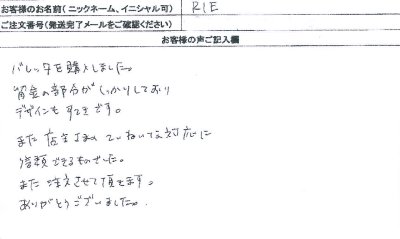 お客様のお名前(ニックネーム、イニシャル可)　RIE
ご注文番号(発送完了メールをご確認ください)
お客様の声ご記入欄
バレッタを購入しました。
留金の部分がしっかりしており
デザインもすてきです。
また店主さまのていねいな対応に
信頼できるものでした。
また注文させて頂きます。
ありがとうございました。